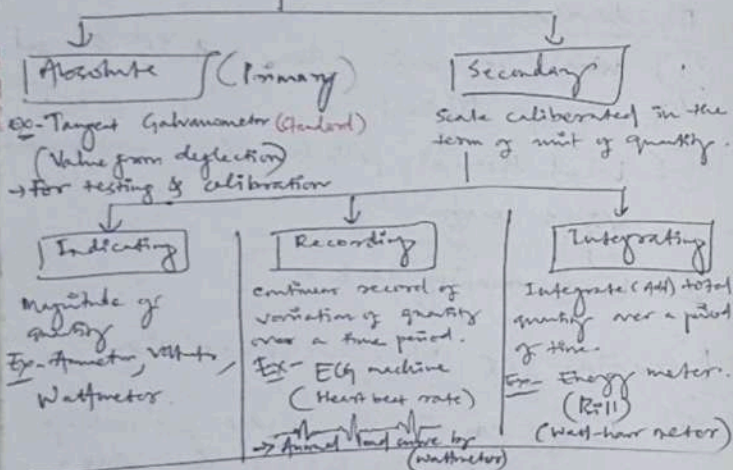 Absolute (Primary)
Ex- Tangent Galvanometer (Standard)
(Value from deflection)
→ For testing & calibration
Secondary
Scale caliberated in the
term of unit of quantity.
Indicating
Magnitude of
quantity
Ex- Ammeter, Voltmeter,
Wattmeter
Recording
continuous record of
variation of quantity
over a time period.
Ex- ECG machine
(Heart beat rate)
→ Annual load curve by
(wattmeter)
Integrating
Integrate (Add) total
quantity over a period
of time.
Ex- Energy meter.
(Bill)
(Watt-hour meter)